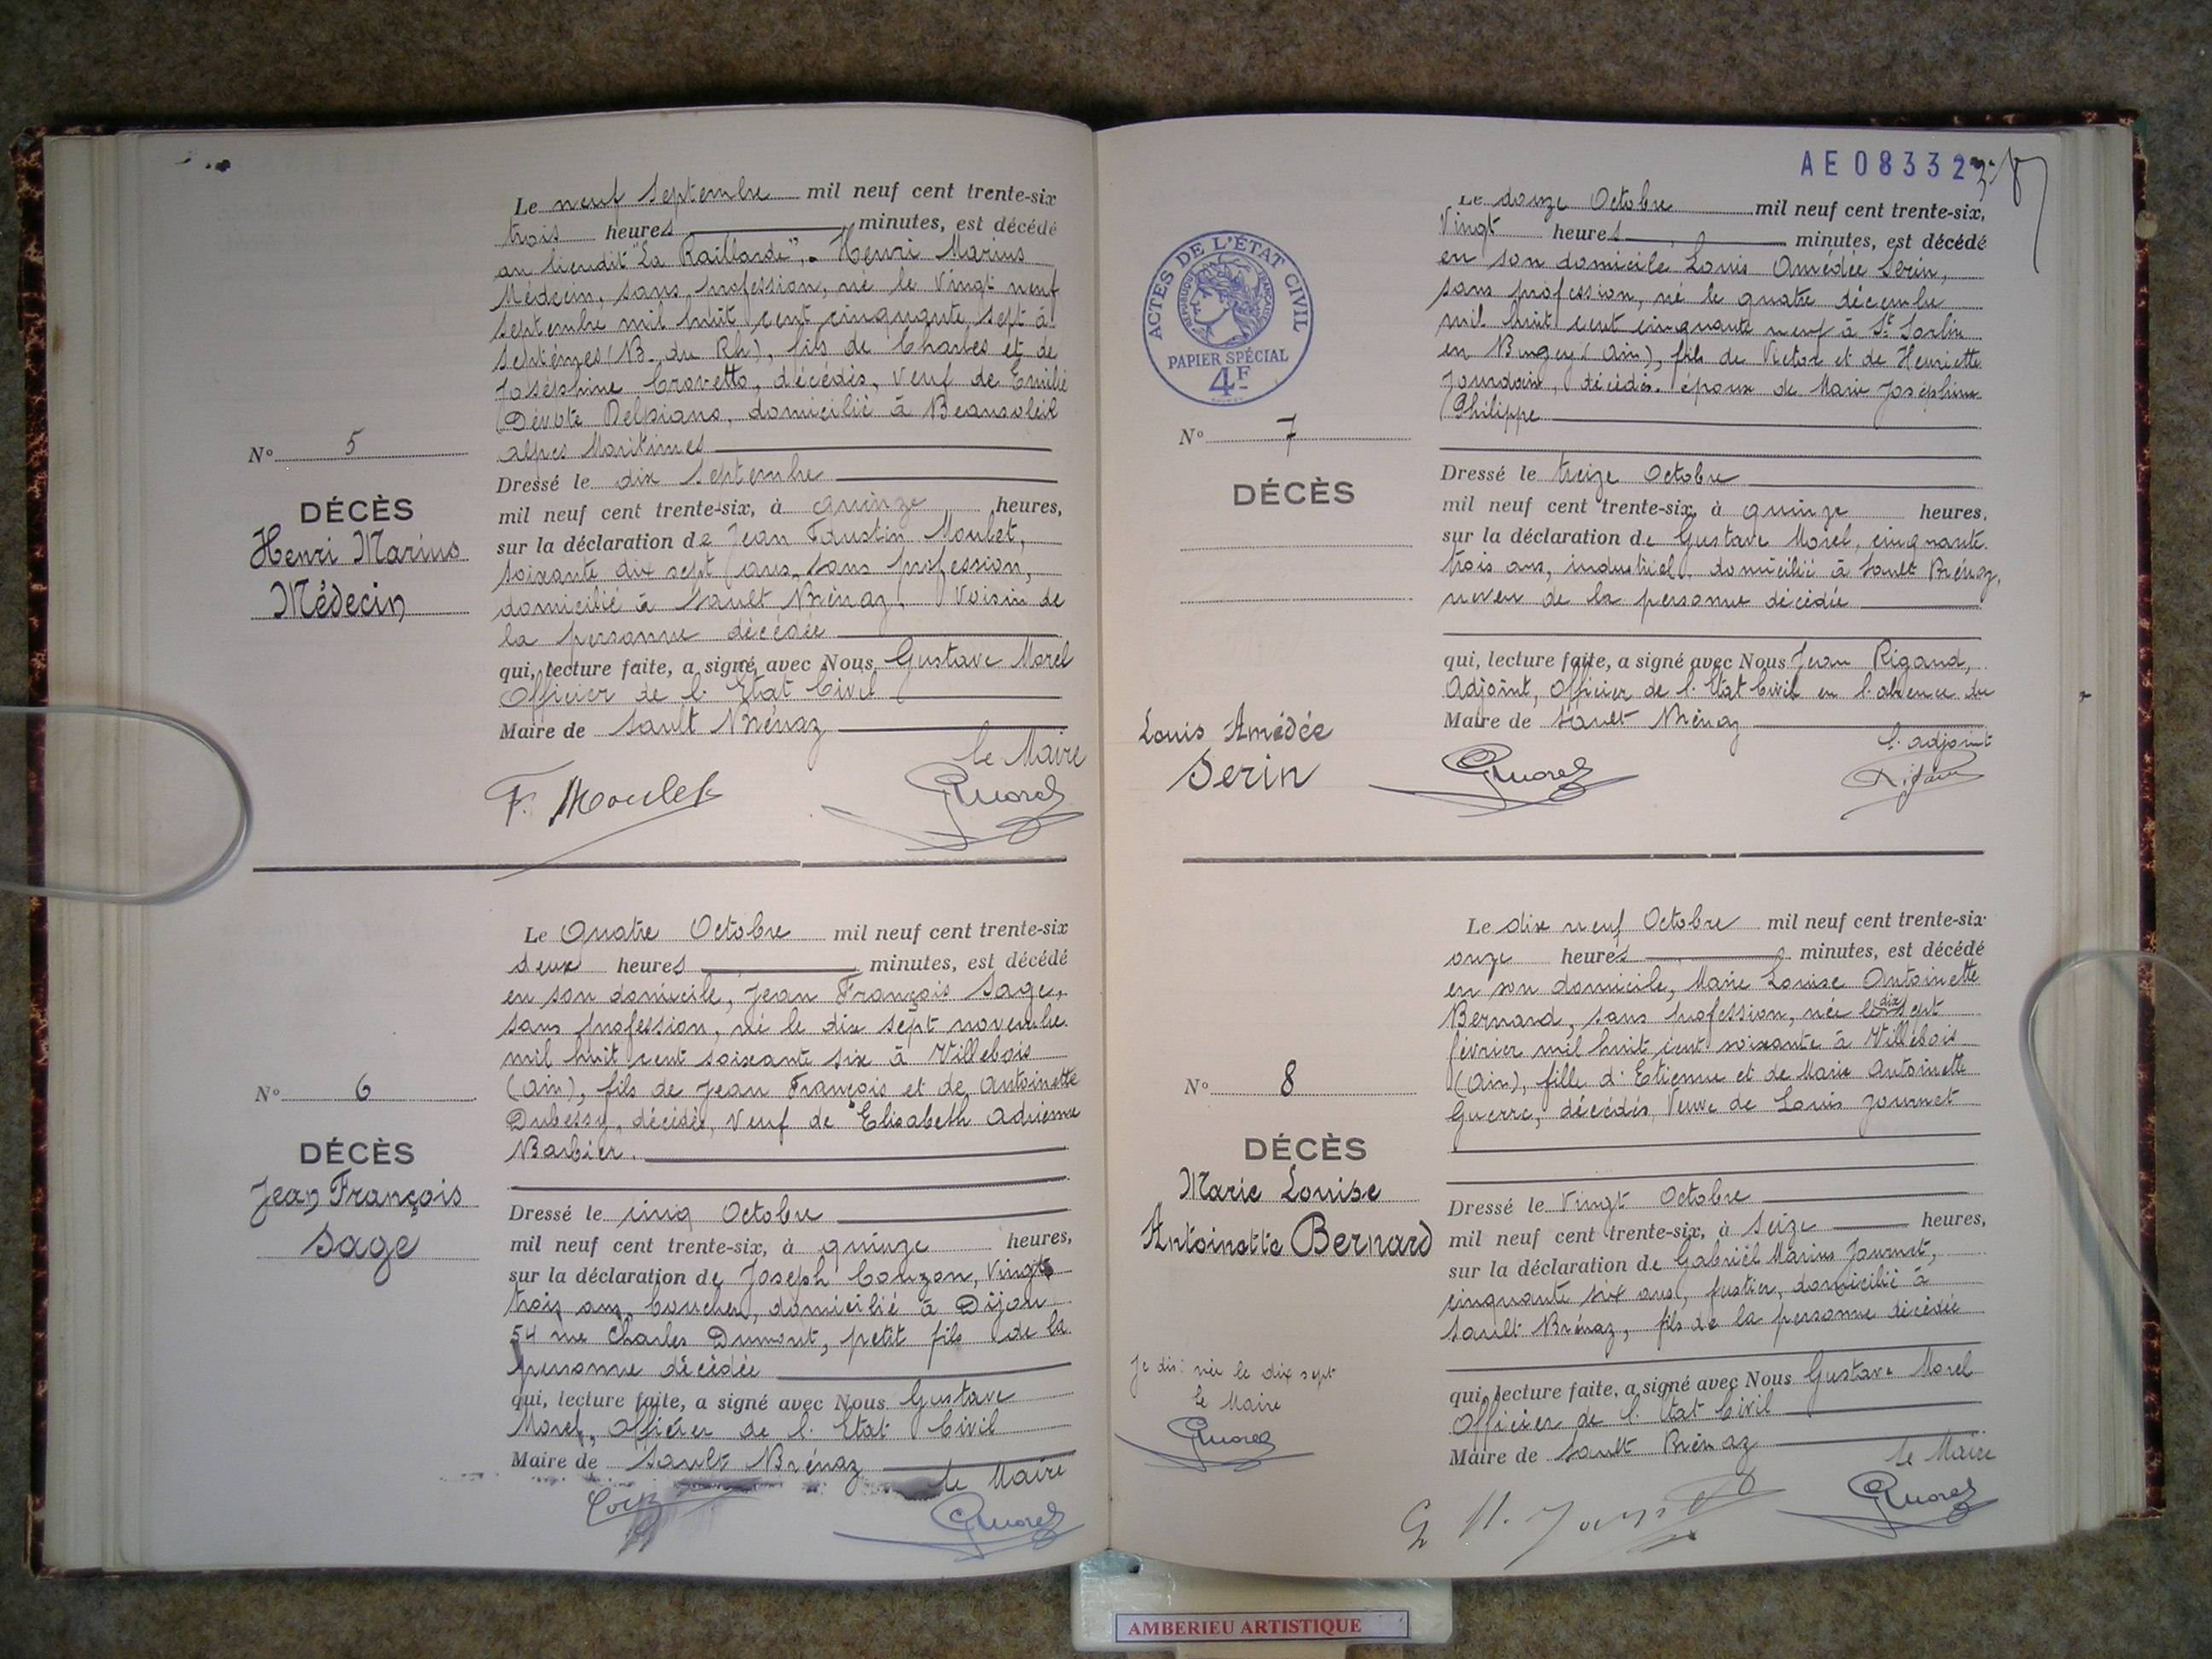 Le neuf Septembre mil neuf cent trente-six
trois heures minutes, est décédé
au lieudit "La Raillarde", Henri Marius
Médecin, sans profession, né le Vingt neuf
Septembre mil huit cent cinquante sept à
Septémes (B. du Rh), fils de Charles et de
Joséphine Crovetto, décédés, veuf de Emilie
Dévote Delpiano, domicilié à Beausoleil
Alpes Maritimes
N° 5
DÉCÈS
Henri Marius
Médecin
Dressé le dix Septembre
mil neuf cent trente-six, à quinze heures,
sur la déclaration de Jean Faustin Moulet,
soixante dix sept ans, sans profession,
domicilié à Sault Brénaz, Voisin de
la personne décédée
qui, lecture faite, a signé avec Nous, Gustave Morel
Officier de l'Etat Civil
Maire de Sault Brénaz
le Maire
F. Moulet
GMorel
Le Quatre Octobre mil neuf cent trente-six
deux heures minutes, est décédé
en son domicile, Jean François Sage,
sans profession, né le dix sept novembre
mil huit cent soixante six à Villebois
(Ain), fils de Jean François et de Antoinette
Dubessy, décédés, veuf de Elisabeth Adrienne
Barbier.
N° 6
DÉCÈS
Jean François
Sage
Dressé le cinq Octobre
mil neuf cent trente-six, à quinze heures,
sur la déclaration de Joseph Couzon, vingt
trois ans, boucher, domicilié à Dijon
54 rue Charles Dumont, petit fils de la
personne décédée
qui, lecture faite, a signé avec Nous Gustave
Morel, Officier de l'Etat Civil
Maire de Sault Brénaz
le Maire
GMorel
AE 08332
Le douze Octobre mil neuf cent trente-six,
Vingt heures minutes, est décédé
en son domicile Louis Amédée Serin,
sans profession, né le quatre décembre
mil huit cent cinquante neuf à St Sorlin
en Bugey (Ain), fils de Victor et de Henriette
Jourdain, décédés. époux de Marie Joséphine
Philippe
ACTES DE L'ÉTAT CIVIL
RÉPUBLIQUE FRANÇAISE
PAPIER SPÉCIAL
4F
N° 7
DÉCÈS
Louis Amédée
Serin
Dressé le treize Octobre
mil neuf cent trente-six, à quinze heures,
sur la déclaration de Gustave Morel, cinquante
trois ans, industriel, domicilié à Sault Brénaz,
neveu de la personne décédée
qui, lecture faite, a signé avec Nous Jean Rigaud,
Adjoint, Officier de l'Etat Civil en l'absence du
Maire de Sault Brénaz
l'adjoint
GMorel
Rigaud
Le dix neuf Octobre mil neuf cent trente-six
onze heures minutes, est décédé
en son domicile, Marie Louise Antoinette
Bernard, sans profession, née le dix sept
février mil huit cent soixante à Villebois
(Ain), fille d'Etienne et de Marie Antoinette
Guerre, décédés, Veuve de Louis Journet
N° 8
DÉCÈS
Marie Louise
Antoinette Bernard
Dressé le Vingt Octobre
mil neuf cent trente-six, à Seize heures,
sur la déclaration de Gabriel Marius Journet,
cinquante six ans, fustier, domicilié à
Sault Brénaz, fils de la personne décédée
Je dis: née le dix sept
le Maire
GMorel
qui, lecture faite, a signé avec Nous Gustave Morel
Officier de l'Etat Civil
Maire de Sault Brénaz
le Maire
G M. Journet
GMorel
AMBERIEU ARTISTIQUE